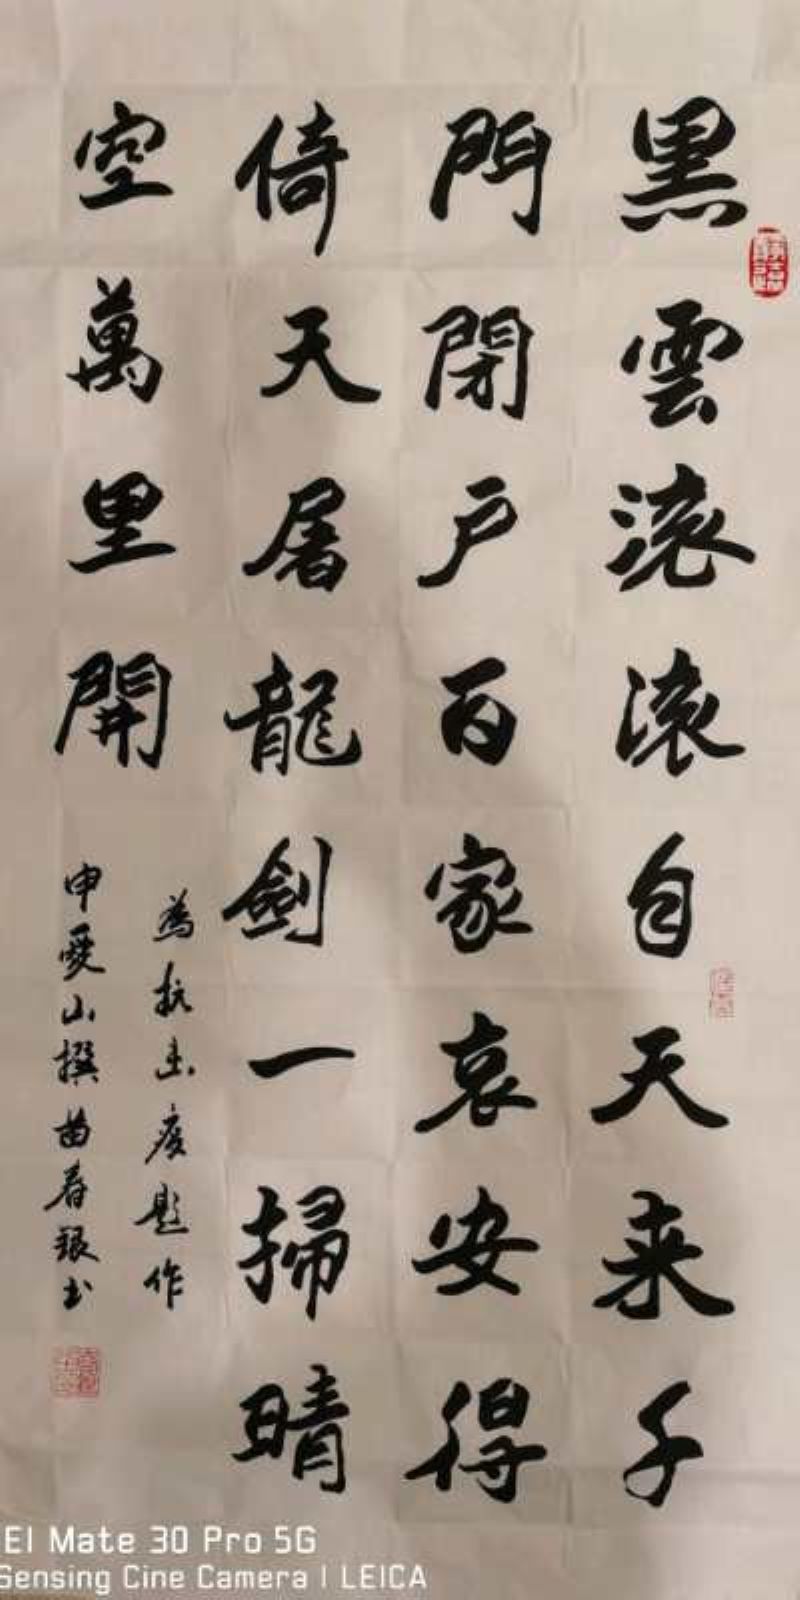 黑雲滾滾自天来千
門閉户百家哀安得
倚天屠龍劍一掃晴
空萬里開
為抗击疫题作
申愛山撰苗春银书
EI Mate 30 Pro 5G
Sensing Cine Camera | LEICA